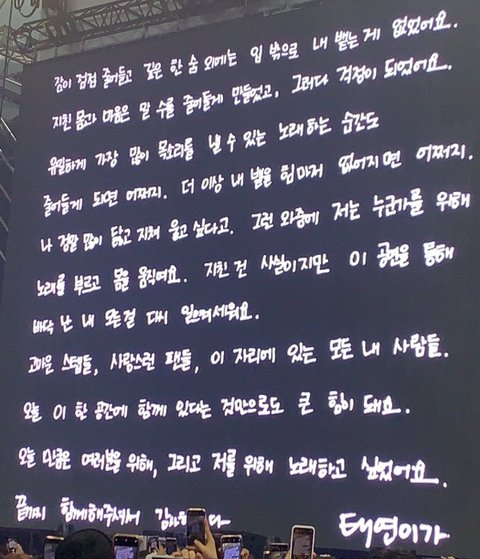 잠이 점점 줄어들고 깊은 한 숨 외에는 입 밖으로 내 뱉는 게 없었어요.
지친 몸과 마음은 말 수를 줄어들게 만들었고, 그러다 걱정이 되었어요.
유일하게 가장 많이 목소리를 낼 수 있는 노래하는 순간도
줄어들게 되면 어쩌지. 더 이상 내 뱉을 힘마저 없어지면 어쩌지.
나 정말 많이 닳고 지쳐 울고 싶다고. 그런 와중에 저는 누군가를 위해
노래를 부르고 몸을 움직여요. 지친 건 사실이지만 이 공연을 통해
바닥 난 내 모든걸 다시 일으켜세워요.
고마운 스텝들, 사랑스런 팬들, 이 자리에 있는 모든 내 사람들.
오늘 이 한 공간에 함께 있다는 것만으로도 큰 힘이 돼요.
오늘 만큼은 여러분을 위해, 그리고 저를 위해 노래하고 싶었어요.
끝까지 함께해주셔서 다
태연이가